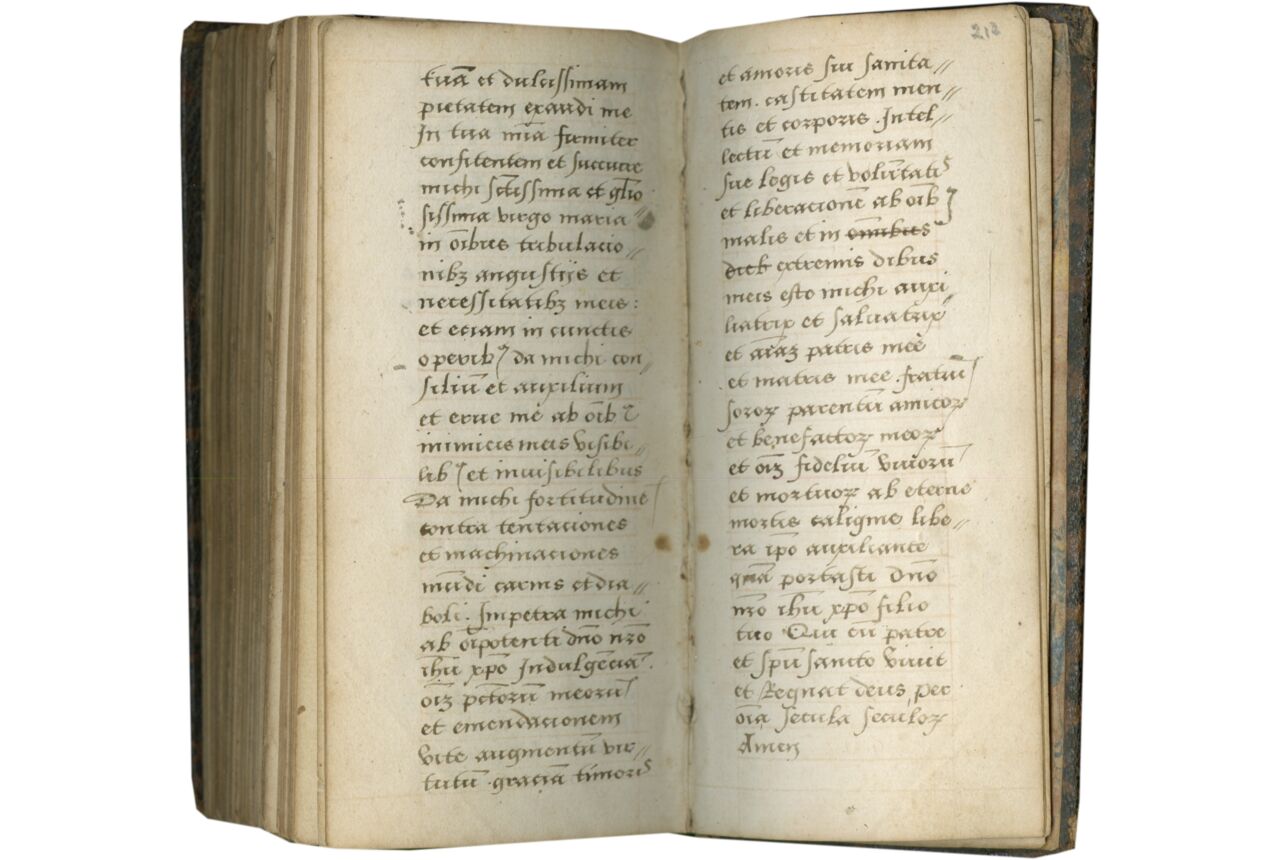 tuā et dulcissimam
pietatem exaudi me
In tua mīa firmiter
confitentem et succurre
michi sctīssima et glīo
sissima virgo maria //
in oībres tribulacio //
nibꝫ angustijs et
necessitatibꝫ meis :
et eciam in cunctis
operibꝰ da michi con /
siliū et auxilium
et erue me ab oībꝰ
inimicis meis visibi //
libꝰ et invisibilibus
Da michi fortitudinē
contra tentaciones
et machinaciones
mūdi carnis et dia //
boli . Impetra michi
ab oīpotenti dño nr̄o
ihū xp̄o Indulgēciā .
oīꝫ pctōrū meorū
et emendacionem
vite augmentū vir //
tutū . graciā timoris
212
et amoris sui sanita //
tem . castitatem men //
tis et corporis . Intel //
lectū et memoriam
sue legis et volūtatis
et liberacionē ab oībꝰ
malis et in omnibus
dieb extremis dibus
meis esto michi auxi //
liatrix et saluatrix
et aīaꝫ patris mee
et matris mee . fratrū
soroꝝ parentū amicoꝝ
et benefactoꝝ meoꝝ
et oīꝫ fideliū viuorū
et mortuoꝝ ab eterne
mortis caligine libe //
ra ip̄o auxiliante
quē portasti dño
nr̄o ihū xp̄o filio
tuo Qui cū patre
et sp̄u sancto viuit
et Regnat deus per
oīa secula seculoꝝ
Amen